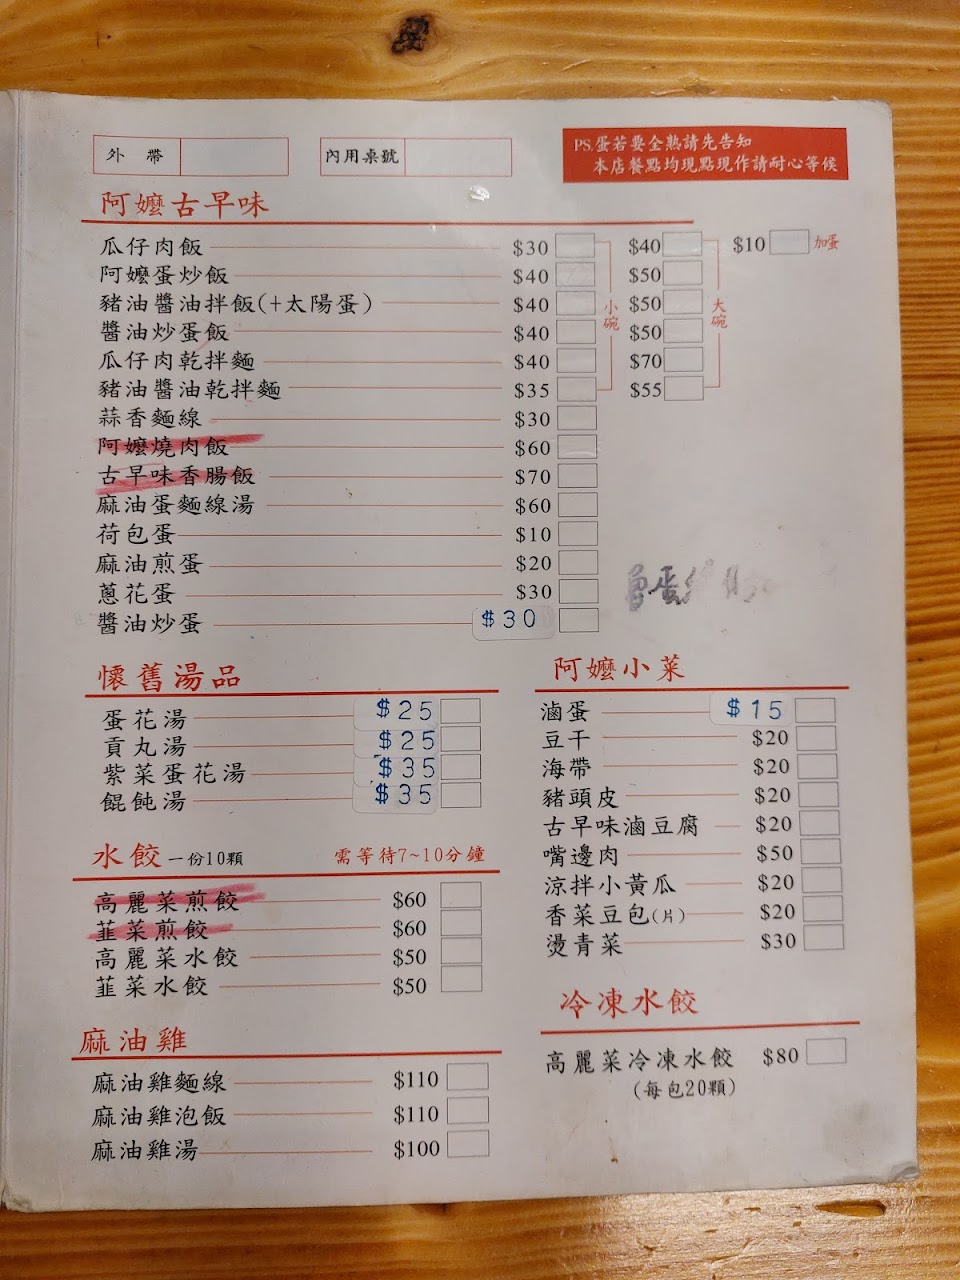 外帶
內用桌號
PS.蛋若要全熟請先告知
本店餐點均現點現作請耐心等候
阿嬤古早味
瓜仔肉飯 $30 $40 $10 加蛋
阿嬤蛋炒飯 $40 $50
豬油醬油拌飯(+太陽蛋) $40 小碗 $50 大碗
醬油炒蛋飯 $40 $50
瓜仔肉乾拌麵 $40 $70
豬油醬油乾拌麵 $35 $55
蒜香麵線 $30
阿嬤燒肉飯 $60
古早味香腸飯 $70
麻油蛋麵線湯 $60
荷包蛋 $10
麻油煎蛋 $20
蔥花蛋 $30
醬油炒蛋 $30
懷舊湯品
蛋花湯 $25
貢丸湯 $25
紫菜蛋花湯 $35
餛飩湯 $35
水餃 一份10顆 需等待7~10分鐘
高麗菜煎餃 $60
韮菜煎餃 $60
高麗菜水餃 $50
韮菜水餃 $50
麻油雞
麻油雞麵線 $110
麻油雞泡飯 $110
麻油雞湯 $100
阿嬤小菜
滷蛋 $15
豆干 $20
海帶 $20
豬頭皮 $20
古早味滷豆腐 $20
嘴邊肉 $50
涼拌小黃瓜 $20
香菜豆包(片) $20
燙青菜 $30
冷凍水餃
高麗菜冷凍水餃 $80
(每包20顆)